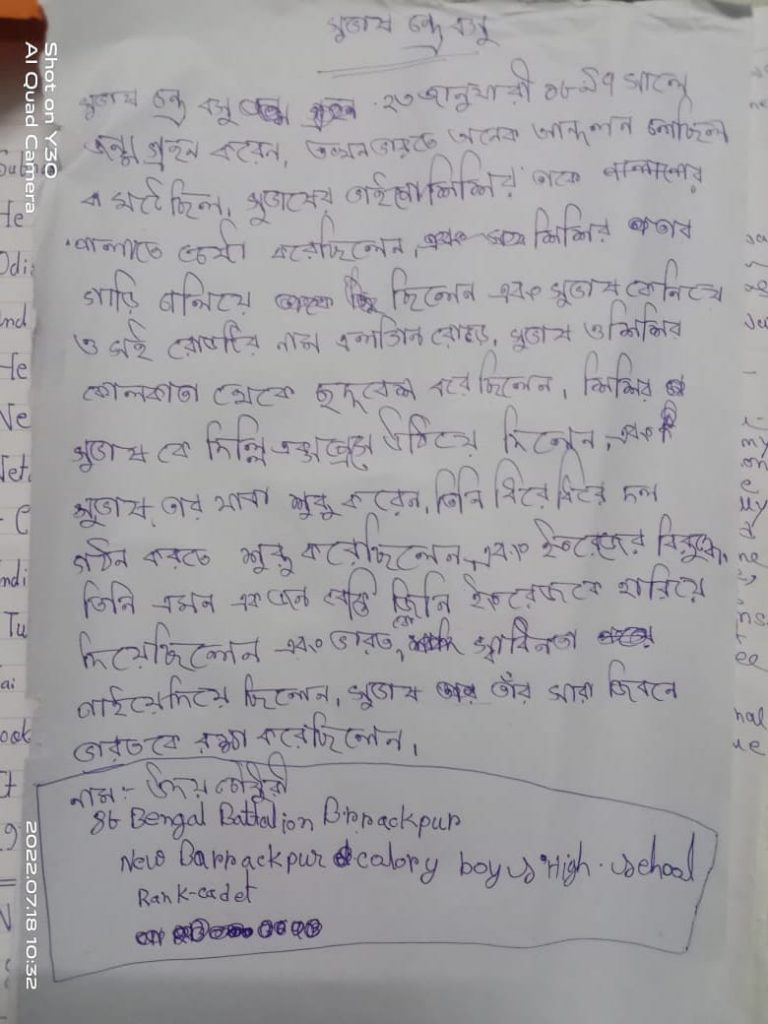 সুভাষ চন্দ্র বসু
সুভাষ চন্দ্র বসু ২৩ জানুয়ারী ১৮৯৭ সালে
জন্ম গ্রহন করেন, তখন ভারতে অনেক আন্দলন
সুভাষের ভাইপো শিশির তাকে পালানোর
পালাতে চেষ্টা করেছিলেন, এবং শিশির তার
গাড়ি চালিয়ে ছিলেন এবং সুভাষ কে নিয়ে
ও সেই রোডটির নাম এলগিন রোড, সুভাষ ও শিশির
কোলকাতা থেকে ছদ্দবেশ করেছিলেন, শিশির
সুভাষ কে দিল্লি এক্সপ্রেসে উঠিয়ে দিলেন, এবং
সুভাষ তার যাত্রা শুরু করেন, তিনি ধিরে ধিরে দল
গঠন করতে শুরু করেছিলেন, এবং ইংরেজের বিরুদ্ধে,
তিনি এমন একজন ব্যক্তি জিনি ইংরেজকে হারিয়ে
দিয়েছিলেন এবং ভারত স্বাধিনতা
পাইয়ে দিয়ে ছিলেন, সুভাষ তাঁর সারা জিবনে
ভারতকে রক্ষা করেছিলেন,
নাম:- উদয় চৌধুরী
86 Bengal Battalion Brrackpur
New Barrackpur colony boys High school
Rank-cadet
Shot on Y30
AI Quad Camera
2022.07.18 10:32